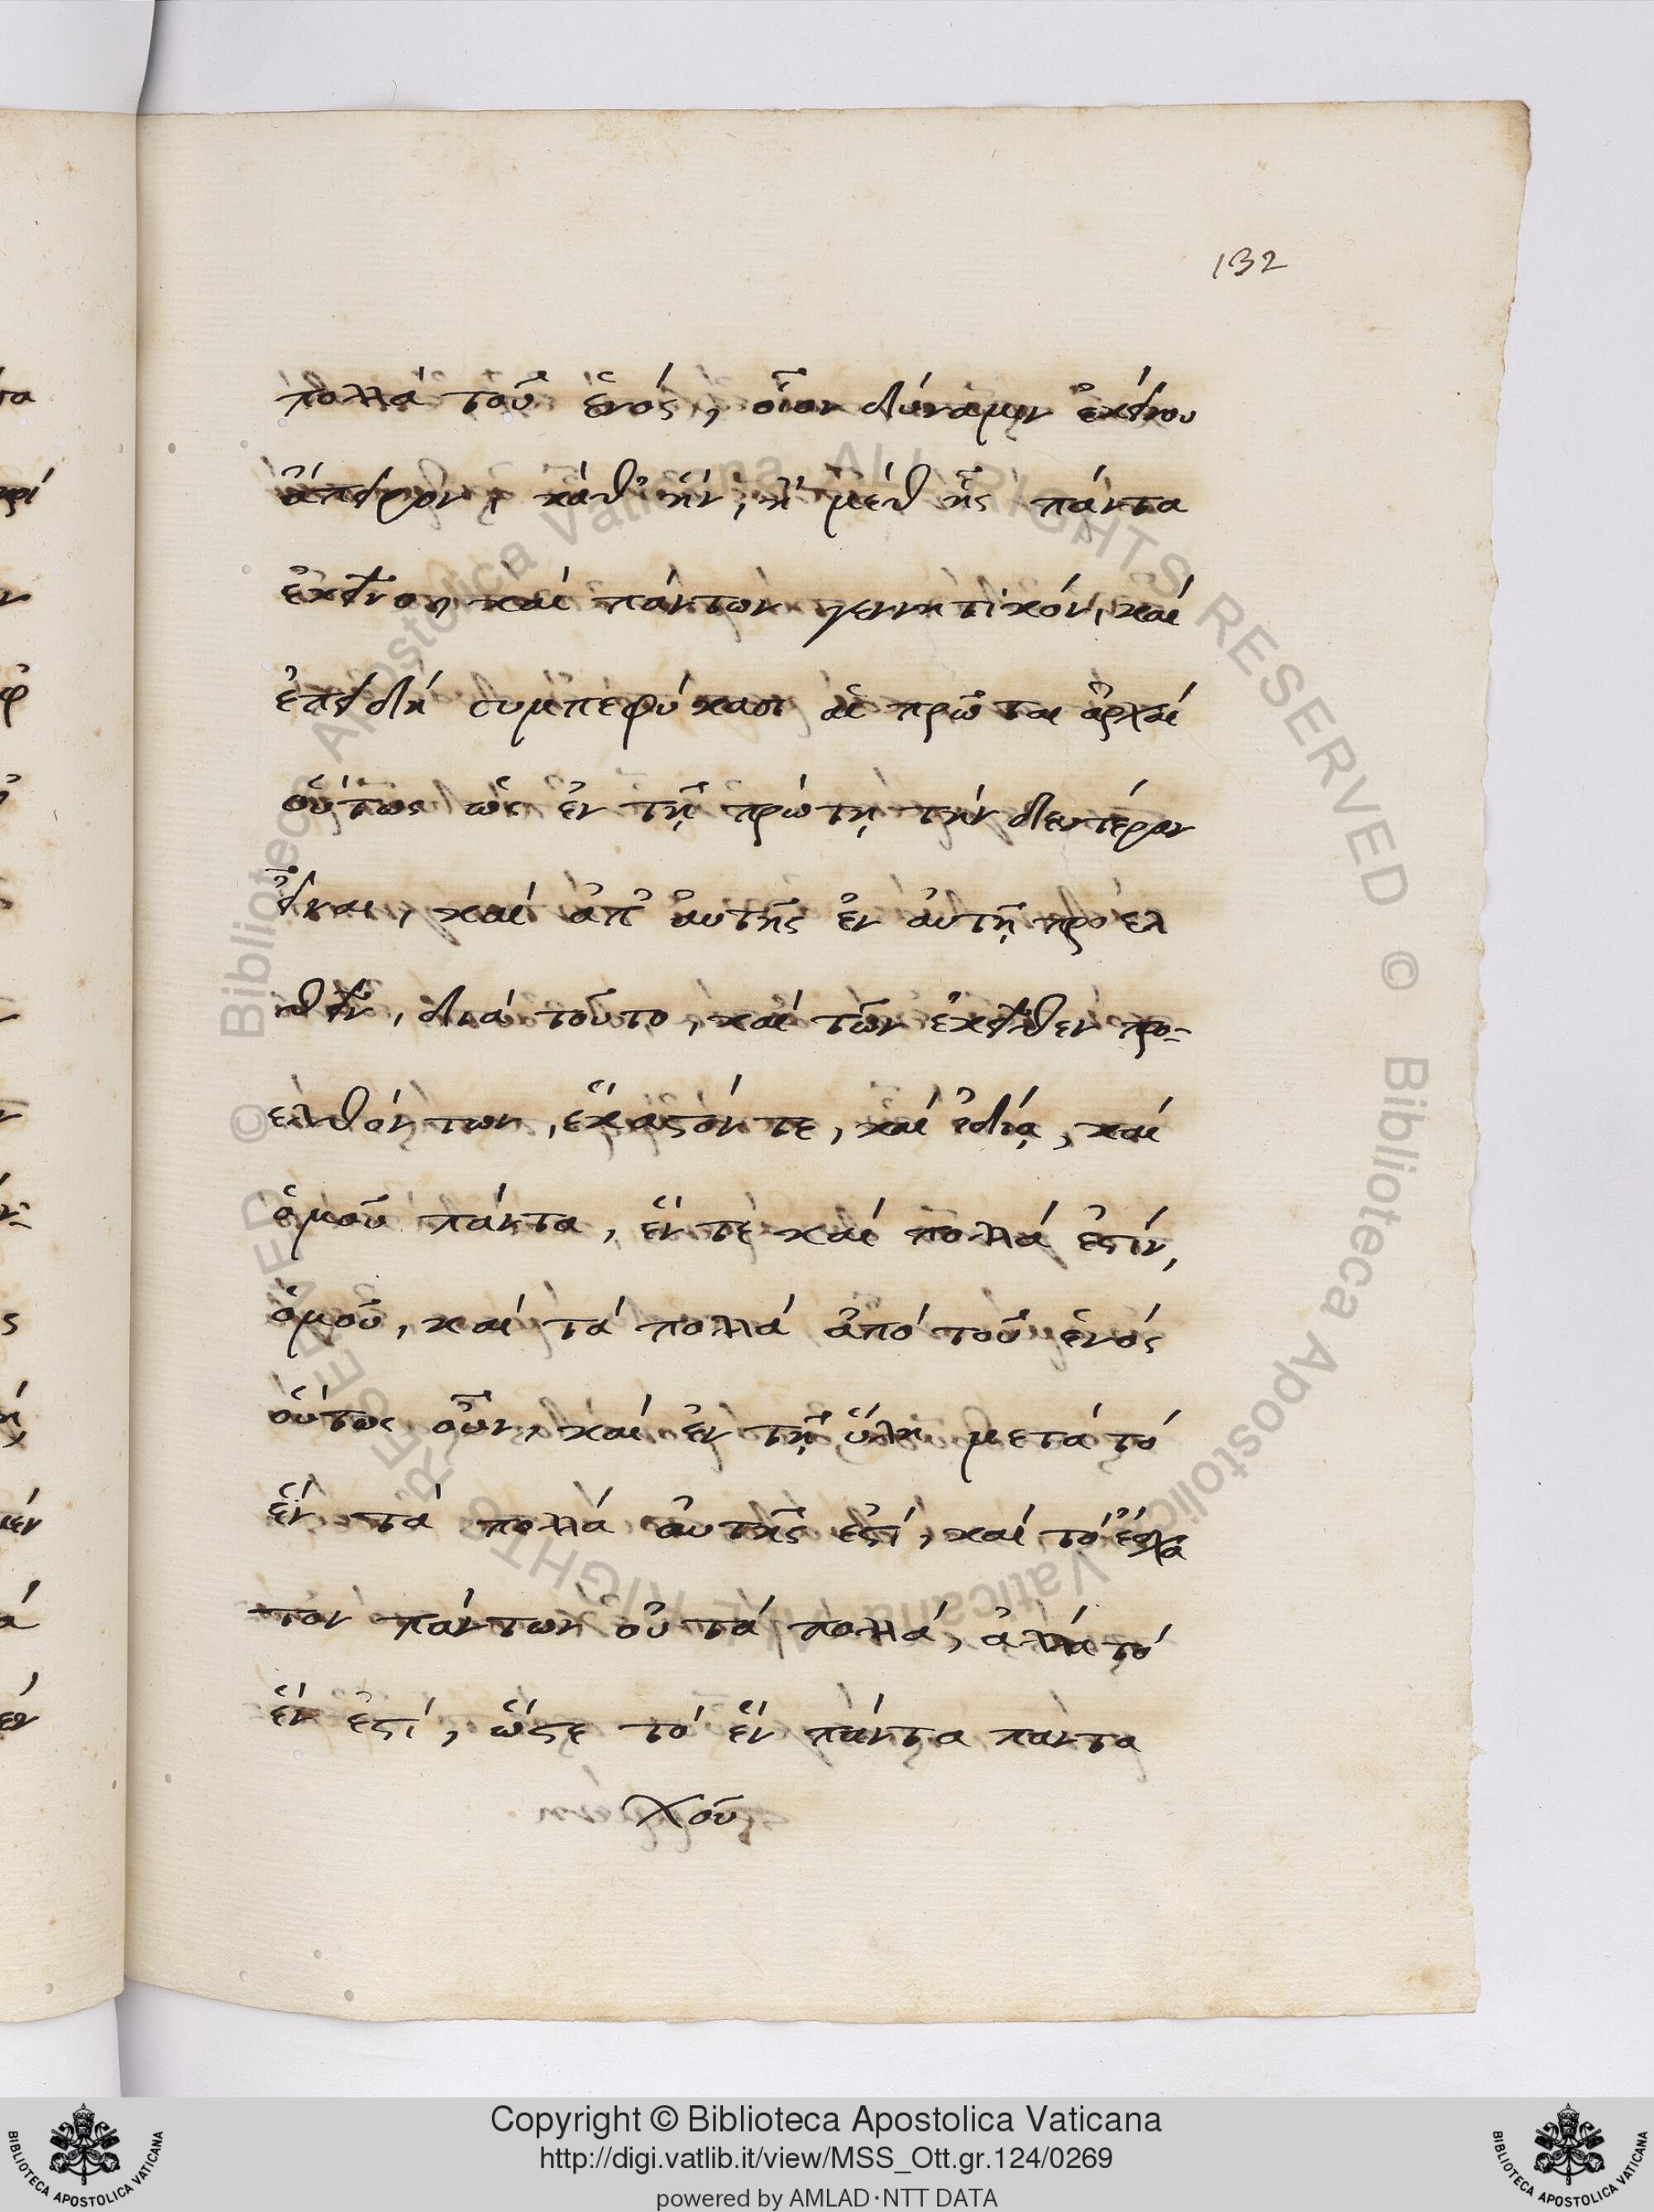 132
πολλὰ τοῦ ἑνός, οἷον δύναμιν ἐκείνου
ἄπειρον, καθ' ἥν, ἢ μεθ ἧς πάντα
ἐκεῖνο, καὶ πάντων γεννητικόν, καὶ
ἐπειδὴ συμπεφύκασι αἱ πρῶται ἀρχαὶ
οὕτως ὡς ἐν τῇ πρώτῃ τὴν δευτέραν
εἶναι, καὶ ἀπ' αὐτῆς ἐν αὐτῇ προελ
θεῖν, διὰ τοῦτο, καὶ τῶν ἐκεῖθεν προ-
ελθόντων, ἕκαστόν τε, καὶ ἰδίᾳ, καὶ
ὁμοῦ πάντα, ἕν τε καὶ πολλά ἐστίν,
ὁμοῦ, καὶ τὰ πολλὰ ἀπὸ τοῦ ἑνός
οὕτως οὖν, καὶ ἐν τῇ ὕλῃ μετὰ τὸ
ἓν τὰ πολλὰ αὐτῆς ἐστί, καὶ τὸ ἔσχα
τον πάντων οὐ τὰ πολλά, ἀλλὰ τὸ
ἕν ἐστί, ὥστε τὸ ἓν πάντα παντα
χοῦ
Copyright © Biblioteca Apostolica Vaticana
http://digi.vatlib.it/view/MSS_Ott.gr.124/0269
powered by AMLAD·NTT DATA
BIBLIOTECA APOSTOLICA VATICANA
BIBLIOTECA APOSTOLICA VATICANA
© Biblioteca Apostolica Vaticana ALL RIGHTS RESERVED
© Biblioteca Apostolica Vaticana ALL RIGHTS RESERVED